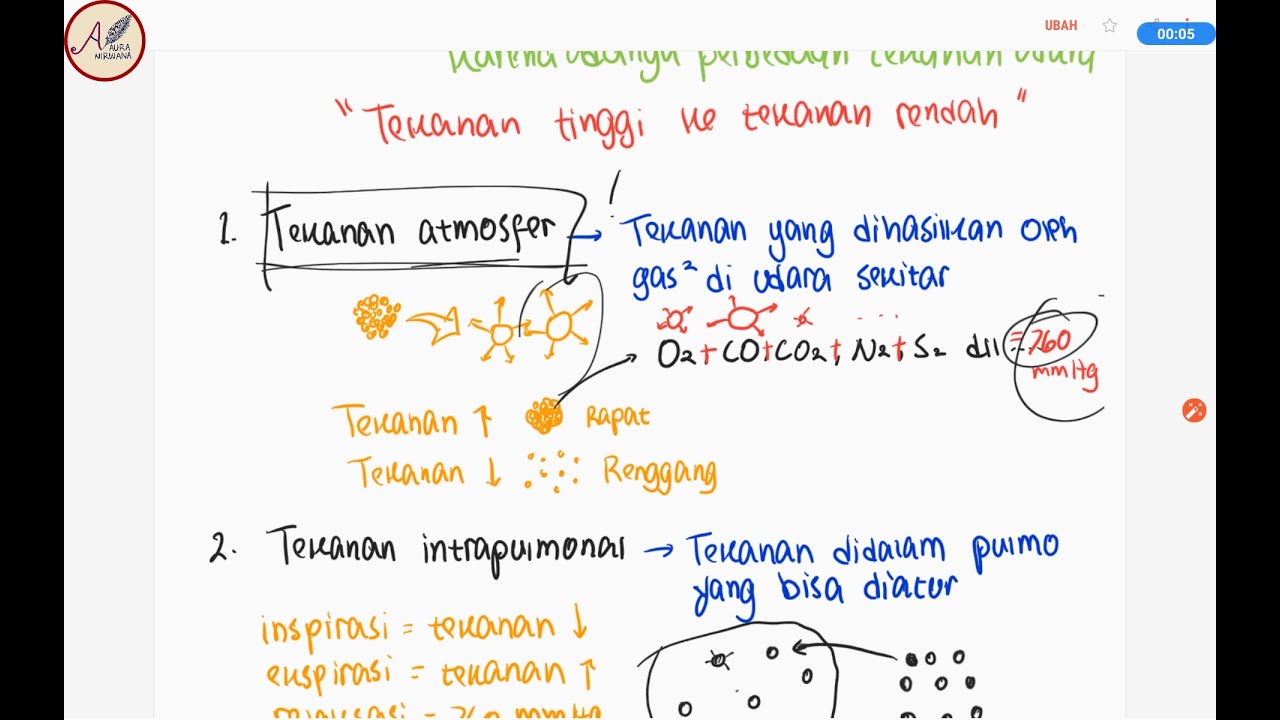 AURA
NIRWANA
UBAH
00:05
Karena adanya perbedaan tekanan udara
"Tekanan tinggi ke tekanan rendah"
1. Tekanan atmosfer → Tekanan yang dihasilkan oleh
gas² di udara sekitar
O2 + CO + CO2 + N2 + S2 dll ... = 760
mmHg
Tekanan ↑ Rapat
Tekanan ↓ Renggang
2. Tekanan intrapulmonal → Tekanan didalam pulmo
yang bisa diatur
inspirasi = tekanan ↓
ekspirasi = tekanan ↑
= 760 mmHg